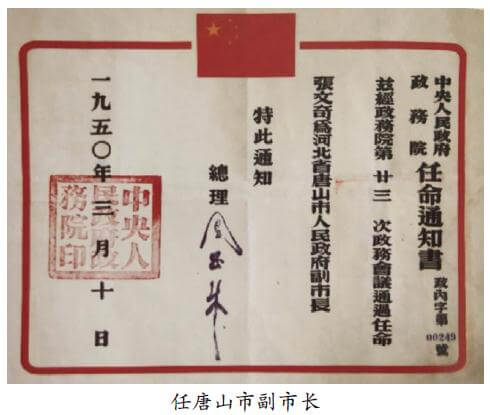 中央人民政府
政務院
任命通知書
政內字第00249號
茲經政務院第廿三次政務會議通過任命
張文奇爲河北省唐山市人民政府副市長
特此通知
總理 周恩來
一九五〇年三月十日
中央人民政府政務院印
任唐山市副市长